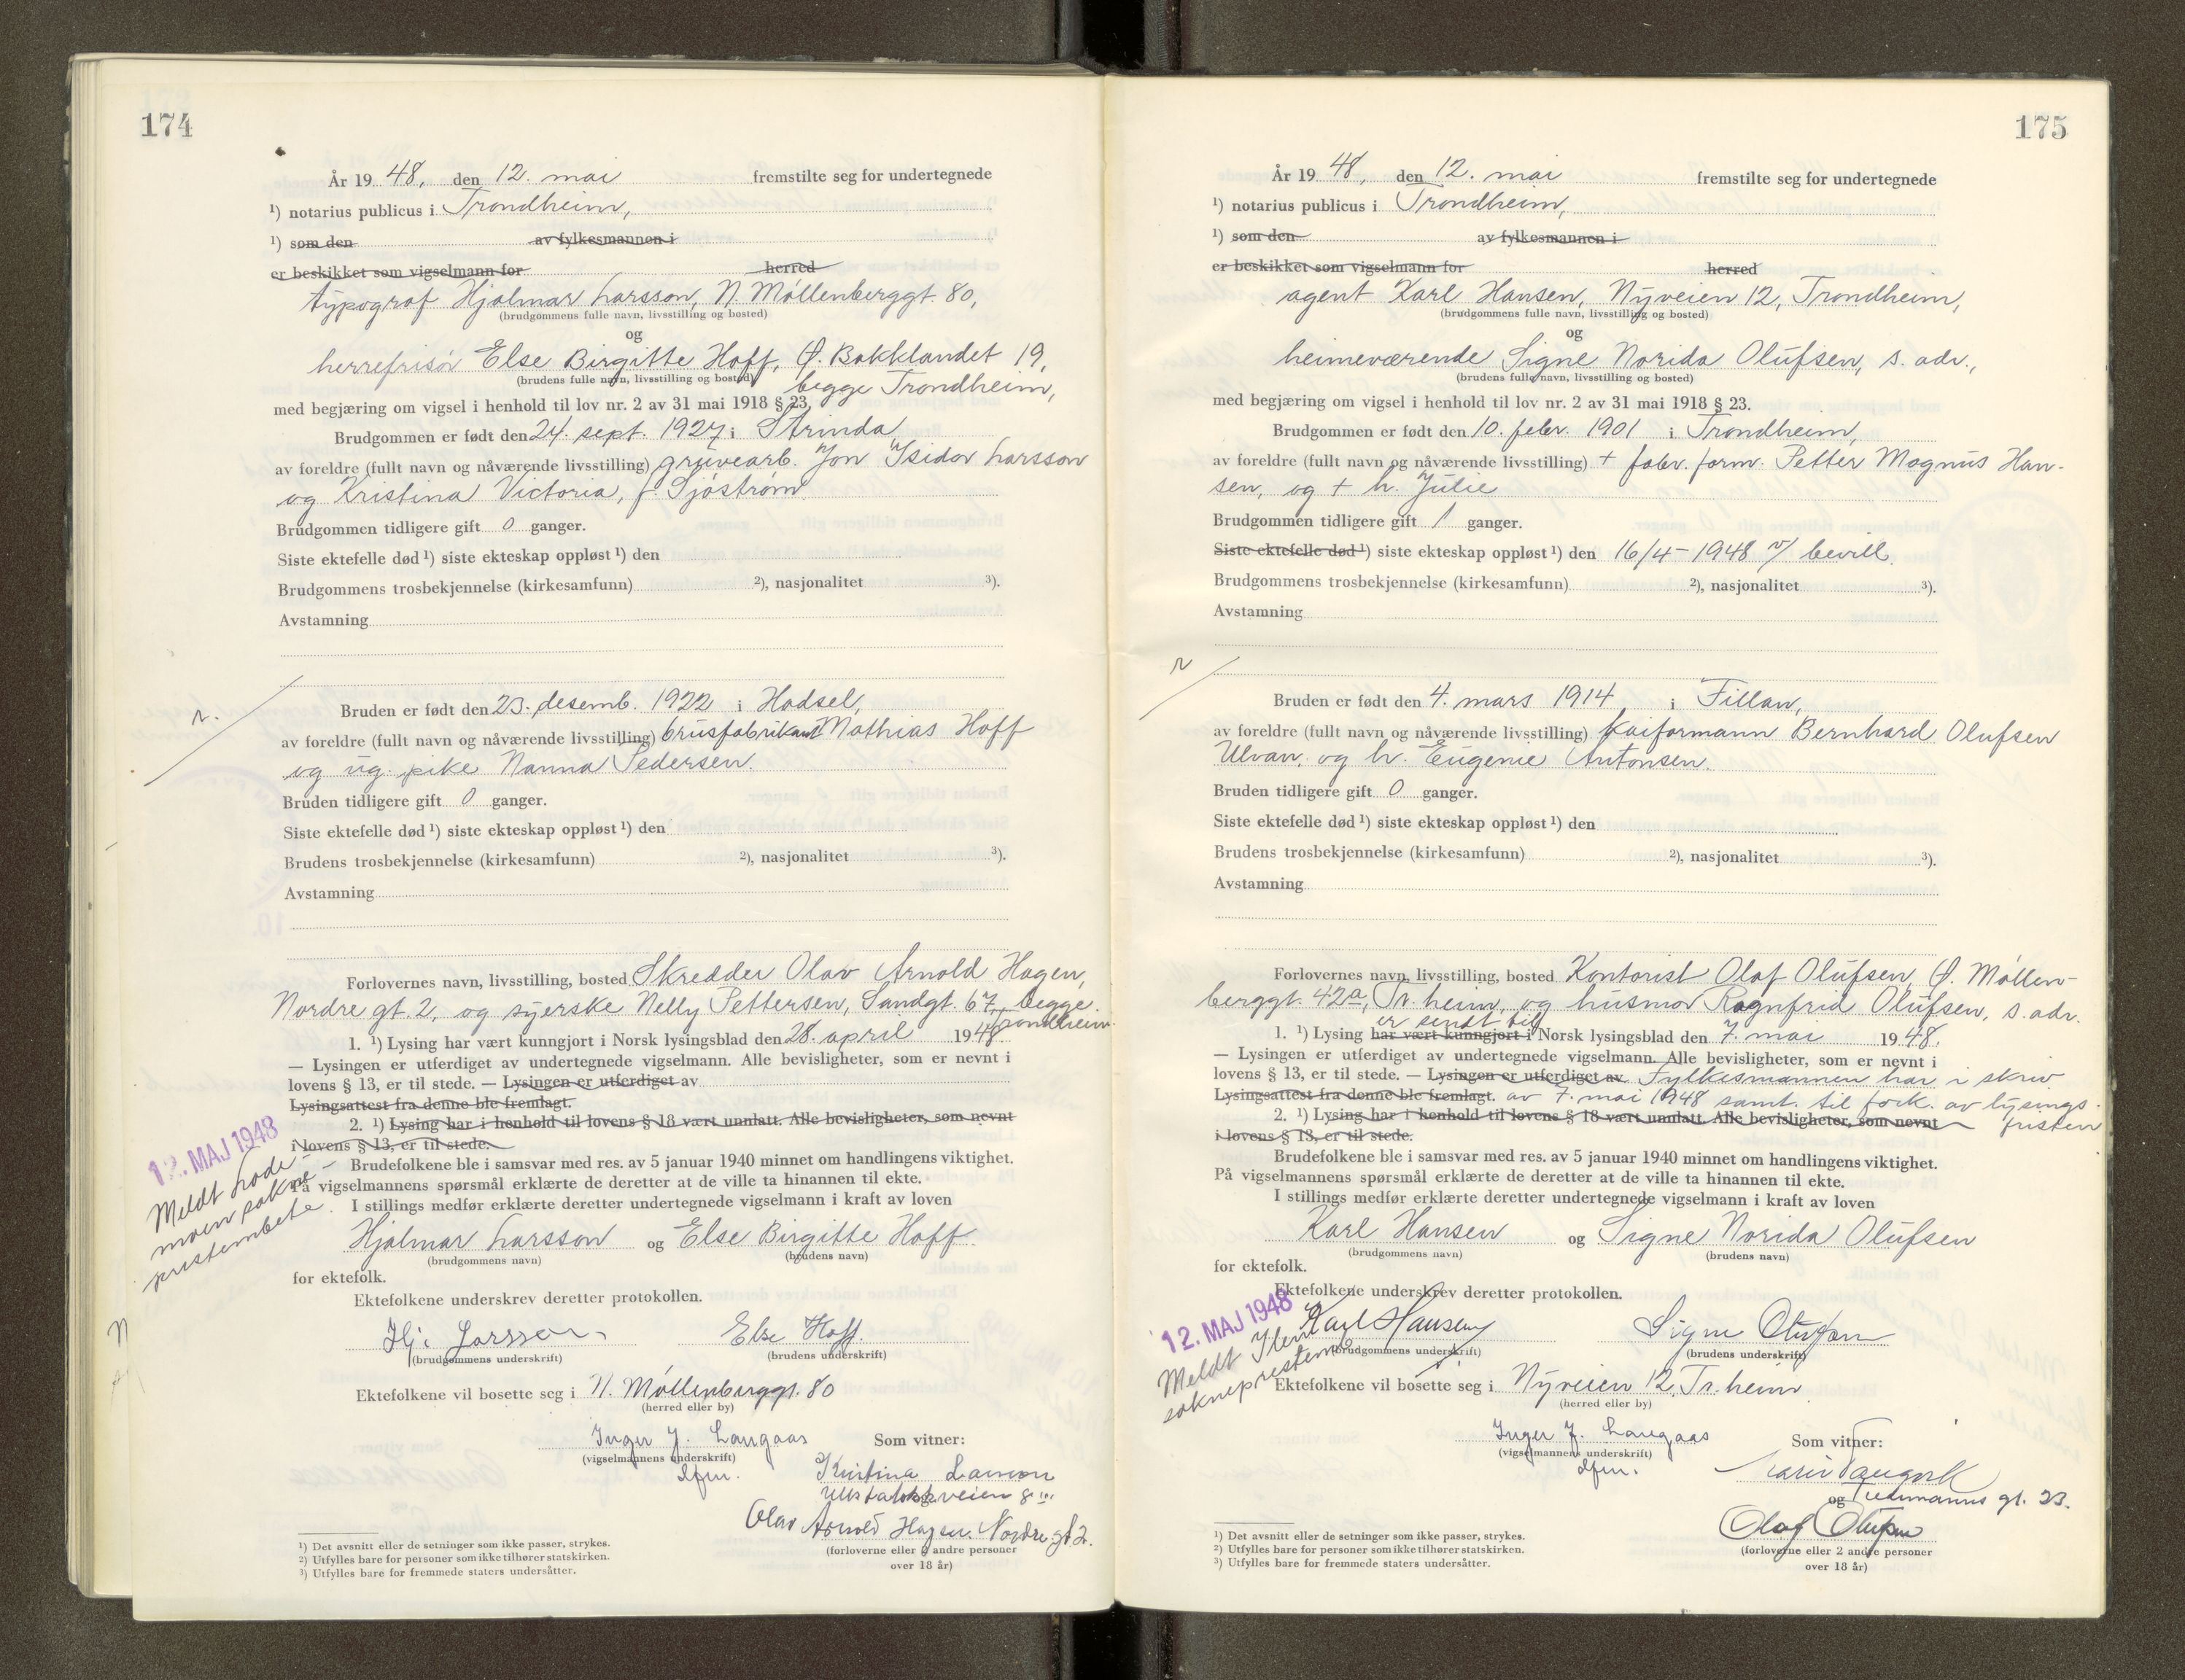 174
År 19 48, den 12. mai fremstilte seg for undertegnede
¹) notarius publicus i Trondheim,
¹) som den av fylkesmannen i
er beskikket som vigselmann for herred
typograf Hjalmar Larsson, N. Møllenberggt. 80,
(brudgommens fulle navn, livsstilling og bosted)
og
herrefrisør Else Birgitte Hoff, Ø. Bakklandet 19,
(brudens fulle navn, livsstilling og bosted) begge Trondheim,
med begjæring om vigsel i henhold til lov nr. 2 av 31 mai 1918 § 23.
Brudgommen er født den 24. sept. 1927 i Strinda
av foreldre (fullt navn og nåværende livsstilling) gruvearb. Jon Isidor Larsson
og Kristina Victoria, f. Sjöström.
Brudgommen tidligere gift 0 ganger.
Siste ektefelle død ¹) siste ekteskap oppløst ¹) den
Brudgommens trosbekjennelse (kirkesamfunn) ²), nasjonalitet ³).
Avstamning
Bruden er født den 23. desemb. 1922 i Hadsel,
av foreldre (fullt navn og nåværende livsstilling) brusfabrikant Mathias Hoff
og ug. pike Nanna Pedersen.
Bruden tidligere gift 0 ganger.
Siste ektefelle død ¹) siste ekteskap oppløst ¹) den
Brudens trosbekjennelse (kirkesamfunn) ²), nasjonalitet ³).
Avstamning
Forlovernes navn, livsstilling, bosted Skredder Olav Arnold Hagen,
Nordre gt. 2, og syerske Nelly Pettersen, Sandgt. 67, begge
Trondheim.
1. ¹) Lysing har vært kunngjort i Norsk lysingsblad den 28. april 1948.
— Lysingen er utferdiget av undertegnede vigselmann. Alle bevisligheter, som er nevnt i
lovens § 13, er til stede. — Lysingen er utferdiget av
Lysingsattest fra denne ble fremlagt.
2. ¹) Lysing har i henhold til lovens § 18 vært unnlatt. Alle bevisligheter, som nevnt
i lovens § 13, er til stede.
12. MAJ 1948
Meldt Lade-
moen sokne-
prestembete.
Brudefolkene ble i samsvar med res. av 5 januar 1940 minnet om handlingens viktighet.
På vigselmannens spørsmål erklærte de deretter at de ville ta hinannen til ekte.
I stillings medfør erklærte deretter undertegnede vigselmann i kraft av loven
Hjalmar Larsson og Else Birgitte Hoff.
(brudgommens navn) (brudens navn)
for ektefolk.
Ektefolkene underskrev deretter protokollen.
Hj. Larsson Else Hoff.
(brudgommens underskrift) (brudens underskrift)
Ektefolkene vil bosette seg i N. Møllenberggt. 80
(herred eller by)
Inger J. Langaas Som vitner:
(vigselmannens underskrift)
dfm. Kristina Larsson
og
Olav Arnold Hagen. Nordre gt. 2.
(forloverne eller 2 andre personer
over 18 år)
¹) Det avsnitt eller de setninger som ikke passer, strykes.
²) Utfylles bare for personer som ikke tilhører statskirken.
³) Utfylles bare for fremmede staters undersåtter.
175
År 19 48, den 12. mai fremstilte seg for undertegnede
¹) notarius publicus i Trondheim,
¹) som den av fylkesmannen i
er beskikket som vigselmann for herred
agent Karl Hansen, Nyveien 12, Trondheim,
(brudgommens fulle navn, livsstilling og bosted)
og
heimeværende Signe Norida Olufsen, s. adr.,
(brudens fulle navn, livsstilling og bosted)
med begjæring om vigsel i henhold til lov nr. 2 av 31 mai 1918 § 23.
Brudgommen er født den 10. febr. 1901 i Trondheim,
av foreldre (fullt navn og nåværende livsstilling) + fabr. form. Petter Magnus Han-
sen, og + h. Julie
Brudgommen tidligere gift 1 ganger.
Siste ektefelle død ¹) siste ekteskap oppløst ¹) den 16/4 - 1948 v/ bevill.
Brudgommens trosbekjennelse (kirkesamfunn) ²), nasjonalitet ³).
Avstamning
Bruden er født den 4. mars 1914 i Fillan,
av foreldre (fullt navn og nåværende livsstilling) kaiformann Bernhard Olufsen
Ulvan, og h. Eugenie Antonsen.
Bruden tidligere gift 0 ganger.
Siste ektefelle død ¹) siste ekteskap oppløst ¹) den
Brudens trosbekjennelse (kirkesamfunn) ²), nasjonalitet ³).
Avstamning
Forlovernes navn, livsstilling, bosted Kontorist Olaf Olufsen, Ø. Møllen-
berggt. 42a, Tr.heim, og husmor Ragnfrid Olufsen, s. adr.
er sendt til
1. ¹) Lysing har vært kunngjort i Norsk lysingsblad den 7. mai 1948.
— Lysingen er utferdiget av undertegnede vigselmann. Alle bevisligheter, som er nevnt i
lovens § 13, er til stede. — Lysingen er utferdiget av Fylkesmannen har i skriv
Lysingsattest fra denne ble fremlagt. av 7. mai 1948 samt. til fork. av lysings-
fristen
2. ¹) Lysing har i henhold til lovens § 18 vært unnlatt. Alle bevisligheter, som nevnt
i lovens § 13, er til stede.
Brudefolkene ble i samsvar med res. av 5 januar 1940 minnet om handlingens viktighet.
På vigselmannens spørsmål erklærte de deretter at de ville ta hinannen til ekte.
I stillings medfør erklærte deretter undertegnede vigselmann i kraft av loven
Karl Hansen og Signe Norida Olufsen
(brudgommens navn) (brudens navn)
for ektefolk.
Ektefolkene underskrev deretter protokollen.
12. MAJ 1948
Meldt Ilen
sokneprestemb.
Karl Hansen Signe Olufsen
(brudgommens underskrift) (brudens underskrift)
Ektefolkene vil bosette seg i Nyveien 12, Tr.heim
(herred eller by)
Inger J. Langaas Som vitner:
(vigselmannens underskrift)
dfm.
og gt. 23.
Olaf Olufsen
(forloverne eller 2 andre personer
over 18 år)
¹) Det avsnitt eller de setninger som ikke passer, strykes.
²) Utfylles bare for personer som ikke tilhører statskirken.
³) Utfylles bare for fremmede staters undersåtter.